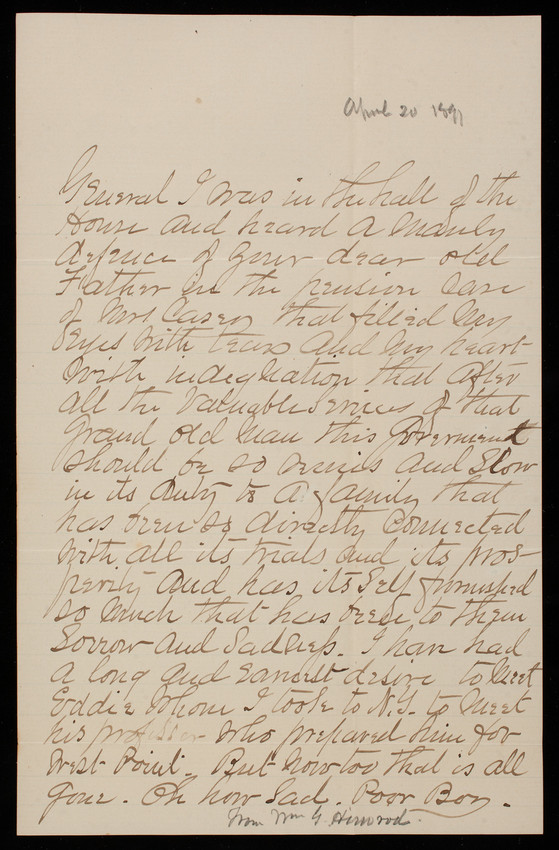 April 20 1891
General I was in the hall of the
House and heard a manly
defence of your dear old
Father in the pension Case
of Mrs. Casey that filled my
eyes with tears and my heart
with indignation that after
all the valuable services of that
grand old man this Goverment
should be so remiss and slow
in its duty to a family that
has been so directly connected
with all its trials and its pros-
perity and has itself furnished
so much that has been to them
Sorrow and Sadness. I have had
a long and earnest desire to meet
Eddie whom I took to N.Y. to meet
his professor who prepared him for
West Point. But now too that is all
gone. Oh how Sad. Poor Boy.
from Wm G. Himrod.